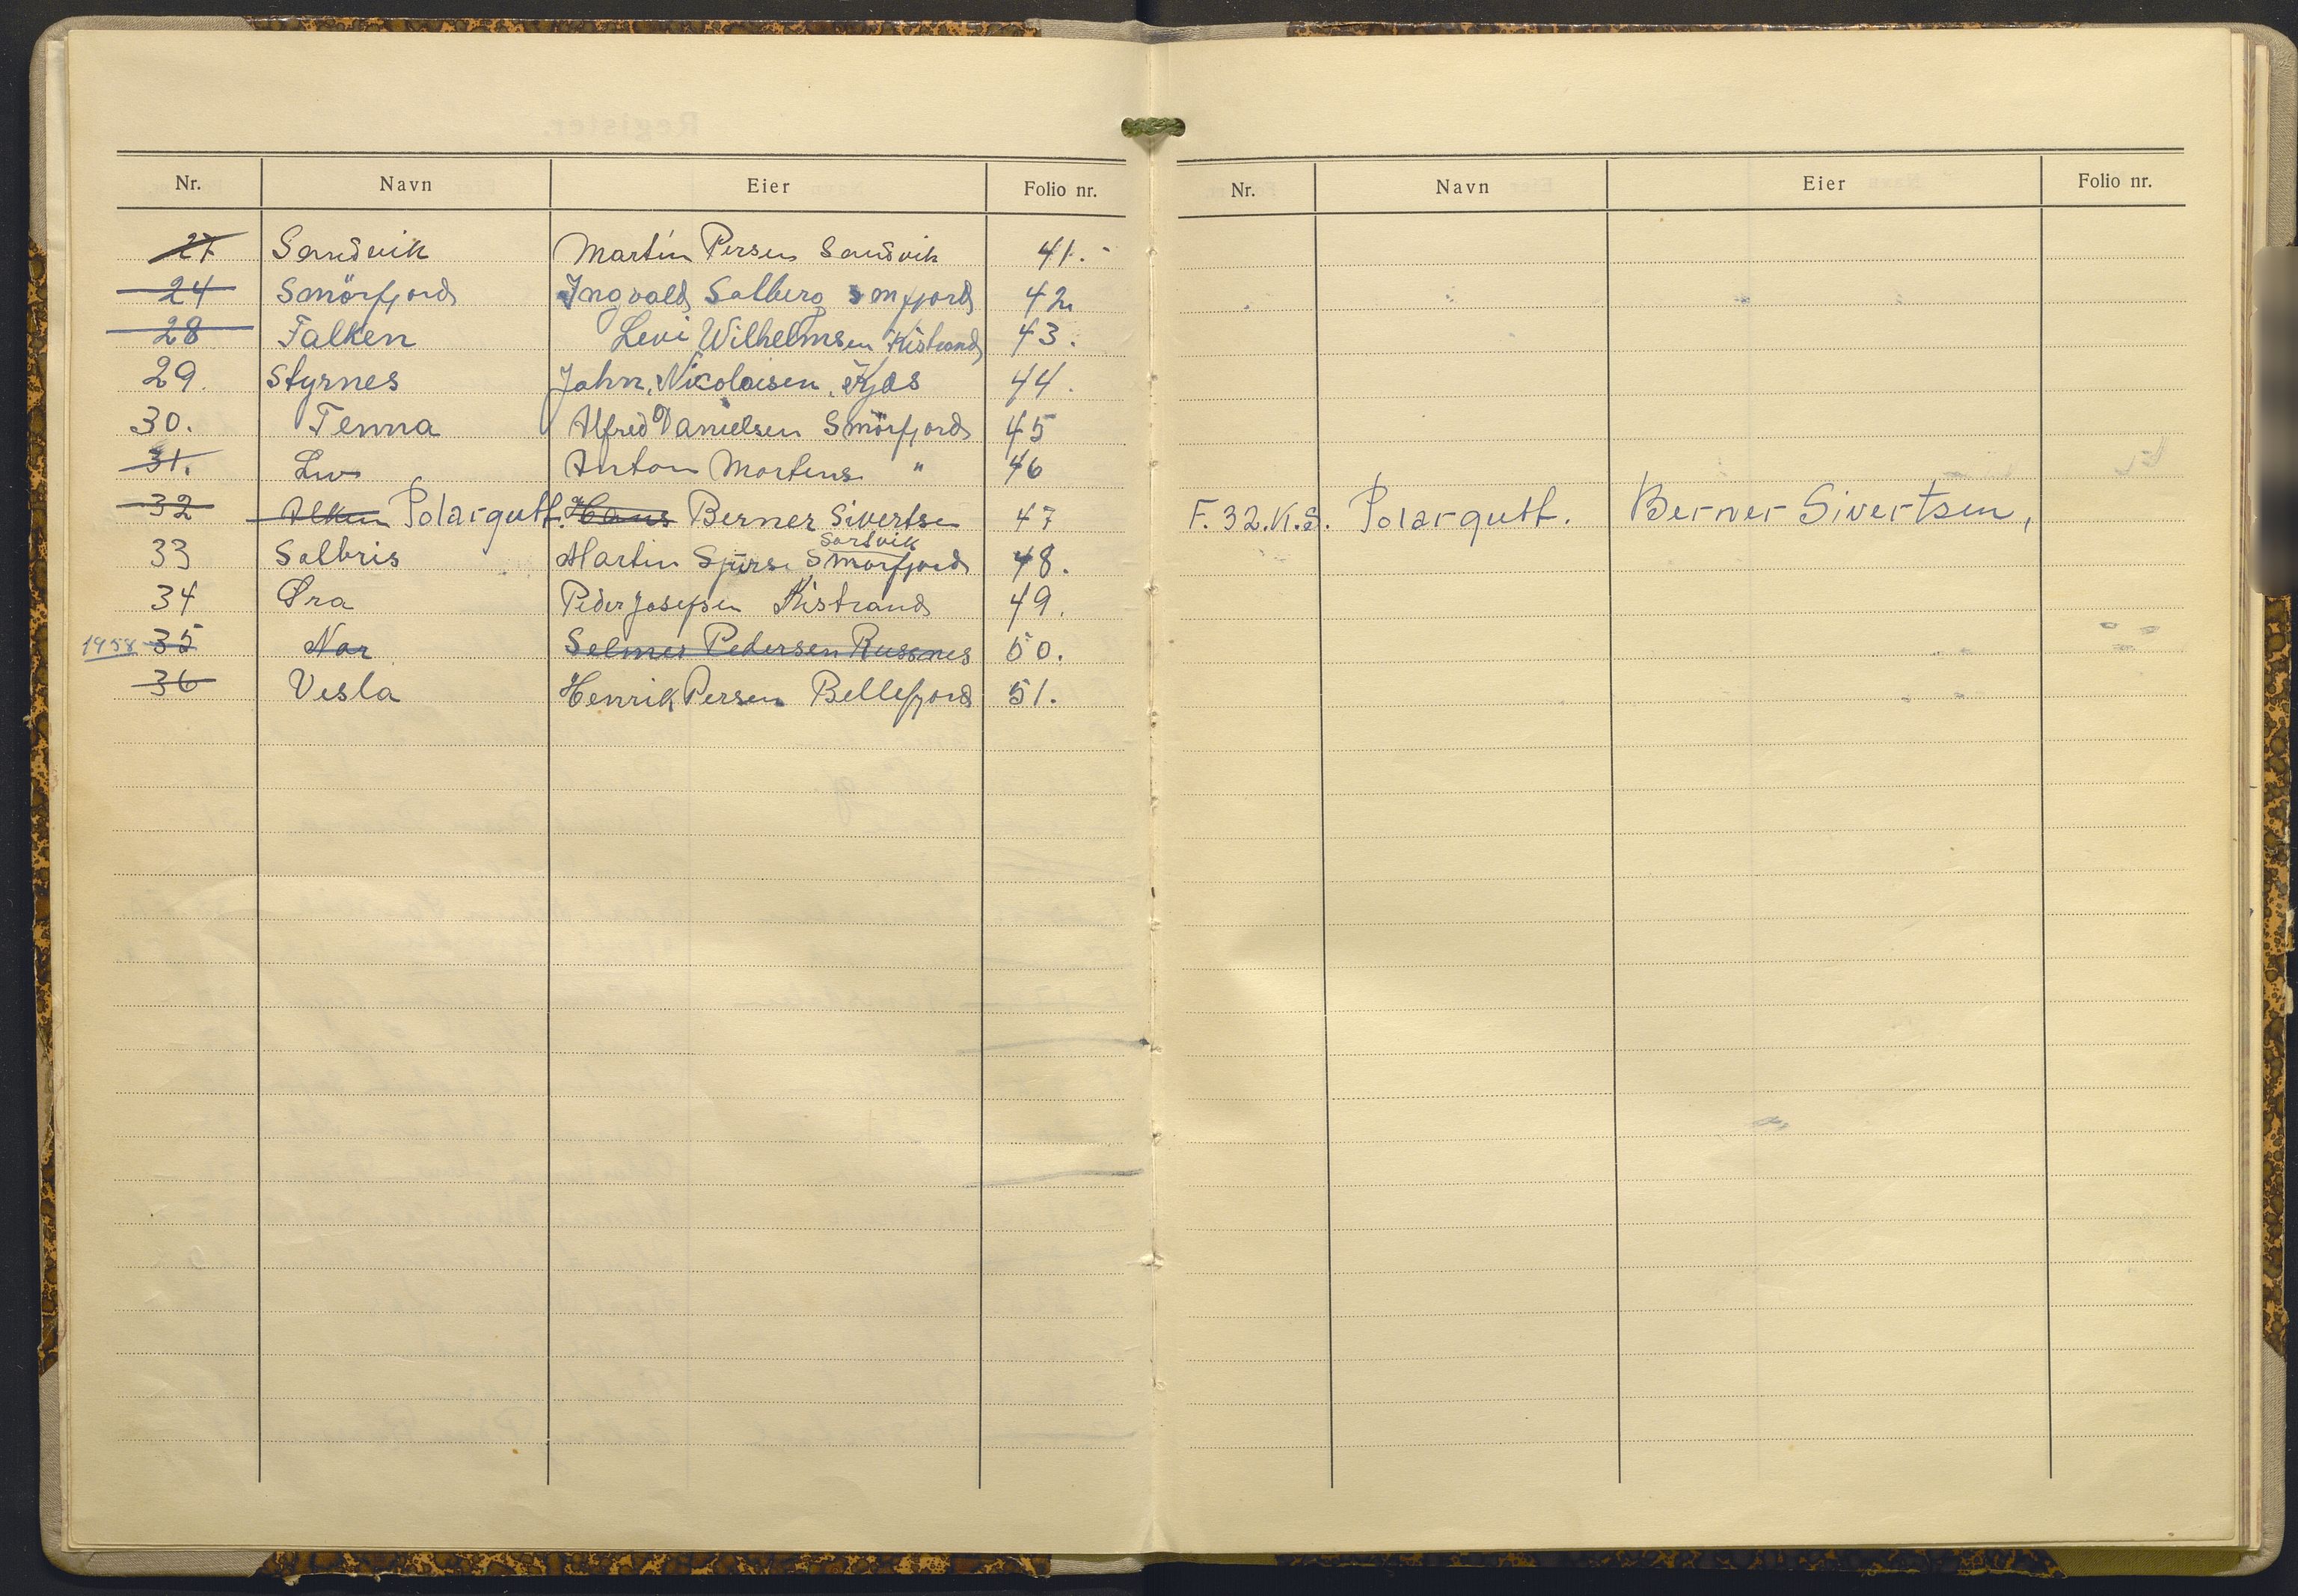 Nr. Navn Eier Folio nr.
27 Sandvik Martin Persen Sandvik 41.
24 Smörfjord Ingvald Salberg Smfjord 42
28 Falken Levi Wilhelmsen Kistrand 43.
29. Styrnes John Nicolaisen 44.
30. Tenna Alfred Danielsen Smörfjord 45
31. Liv Anton Mortens " 46
32 Alken Polargutt. Hans Berner Sivertsen 47
Sortvik
33 Solbris Martin Smörfjord 48.
34 Øra Peder Josefsen Kistrand 49.
1958 35 Nor Selmer Pedersen Russenes 50.
36 Vesla Henrik Persen Billefjord 51.
Nr. Navn Eier Folio nr.
F. 32. K.S. Polargutt. Berner Sivertsen,